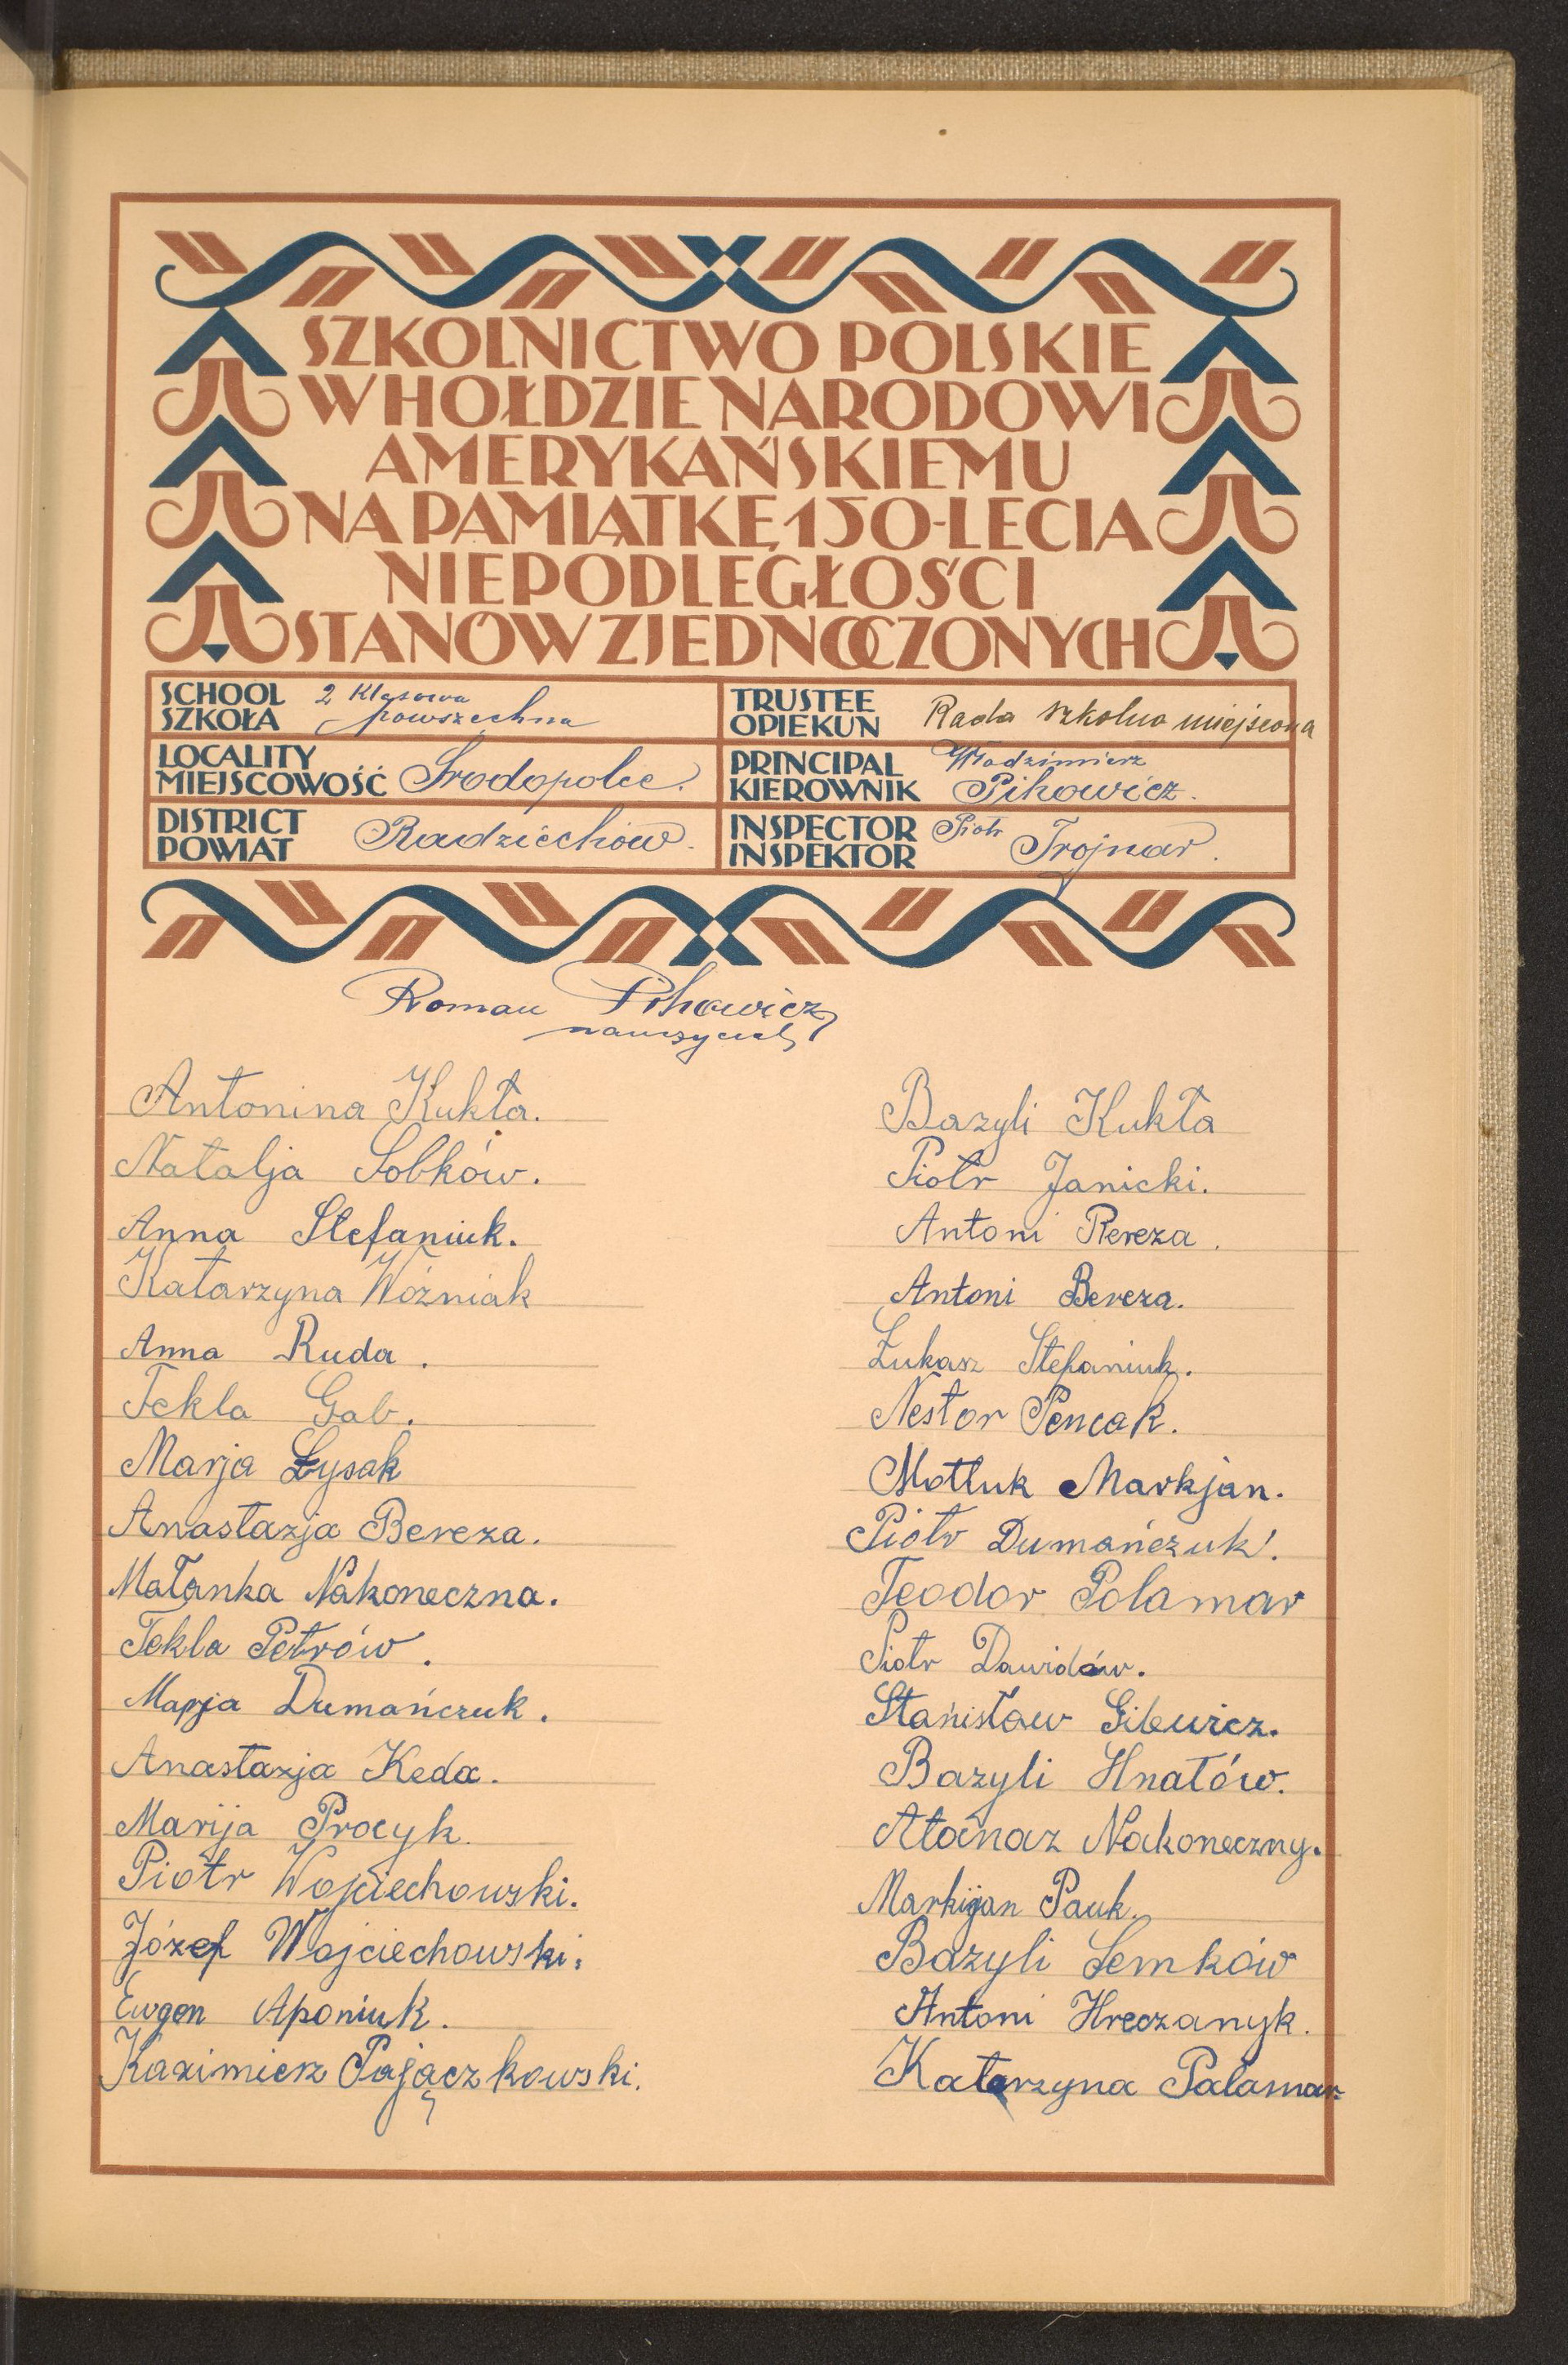 SZKOLNICTWO POLSKIE
W HOŁDZIE NARODOWI
AMERYKAŃSKIEMU
NA PAMIĄTKĘ 150-LECIA
NIEPODLEGŁOŚCI
STANÓW ZJEDNOCZONYCH
SCHOOL
SZKOŁA
2 Klasowa
powszechna
TRUSTEE
OPIEKUN
Rada szkolna miejscowa
LOCALITY
MIEJSCOWOŚĆ
Środopolce.
PRINCIPAL
KIEROWNIK
Włodzimierz
Pihowicz.
DISTRICT
POWIAT
Radziechów.
INSPECTOR
INSPEKTOR
Piotr Trojnar.
Roman Pihowicz
nauczyciel
Antonina Kukła.
Natalja Sobków.
Anna Stefaniuk.
Katarzyna Woźniak
Anna Ruda.
Tekla Gab.
Marja Łysak
Anastazja Bereza.
Małanka Nakoneczna.
Tekla Petrów.
Marja Dumańczuk.
Anastazja Keda.
Marija Procyk.
Piotr Wojciechowski.
Józef Wojciechowski.
Ewgen Aponiuk.
Kazimierz Pajączkowski.
Bazyli Kukła
Piotr Janicki.
Antoni Bereza.
Antoni Bereza.
Łukasz Stefaniuk.
Nestor Pencak.
Motluk Markjan.
Piotr Dumańczuk.
Teodor Polamar
Piotr Dawidów.
Stanisław Gilewicz.
Bazyli Hnatów.
Atanaz Nakoneczny.
Markijan Pauk.
Bazyli Semków
Antoni Hreczanyk.
Katarzyna Palamar